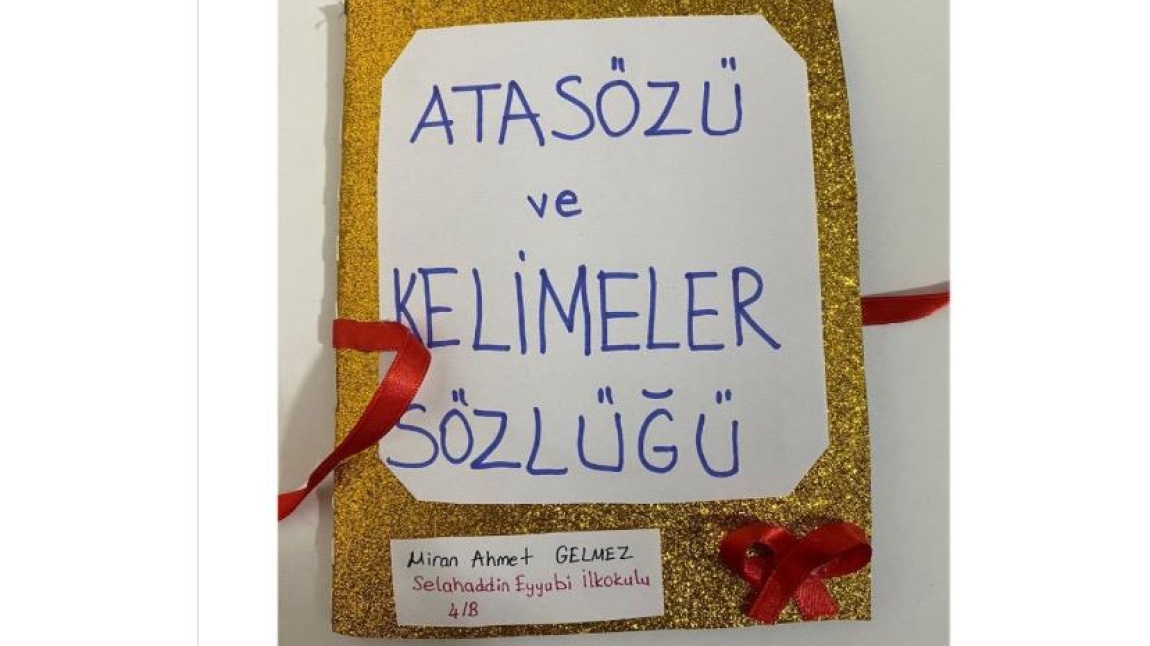 ATASÖZÜ
ve
KELİMELER
SÖZLÜĞÜ
Miran Ahmet GELMEZ
Selahaddin Eyyubi İlkokulu
4/B